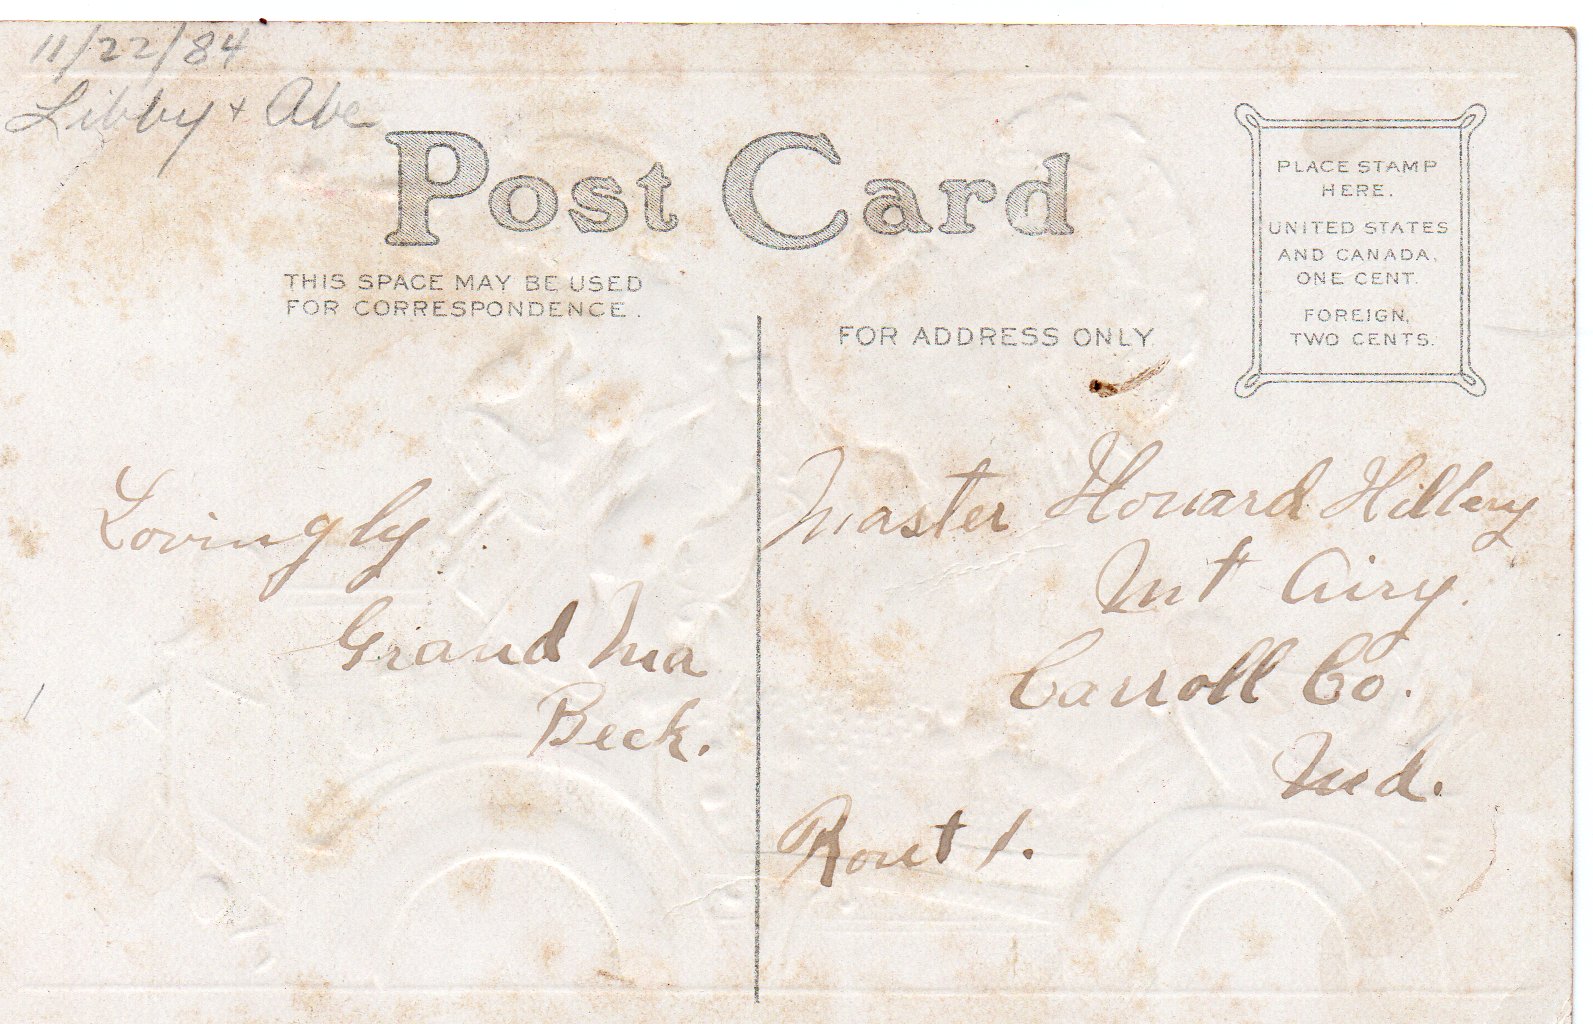 11/22/84
Libby + Abe
Post Card
THIS SPACE MAY BE USED
FOR CORRESPONDENCE.
FOR ADDRESS ONLY.
PLACE STAMP
HERE.
UNITED STATES
AND CANADA,
ONE CENT.
FOREIGN,
TWO CENTS.
Lovingly
Grand Ma
Beck.
Master Howard Hillery
Mt Airy.
Carroll Co.
Md.
Rout 1.